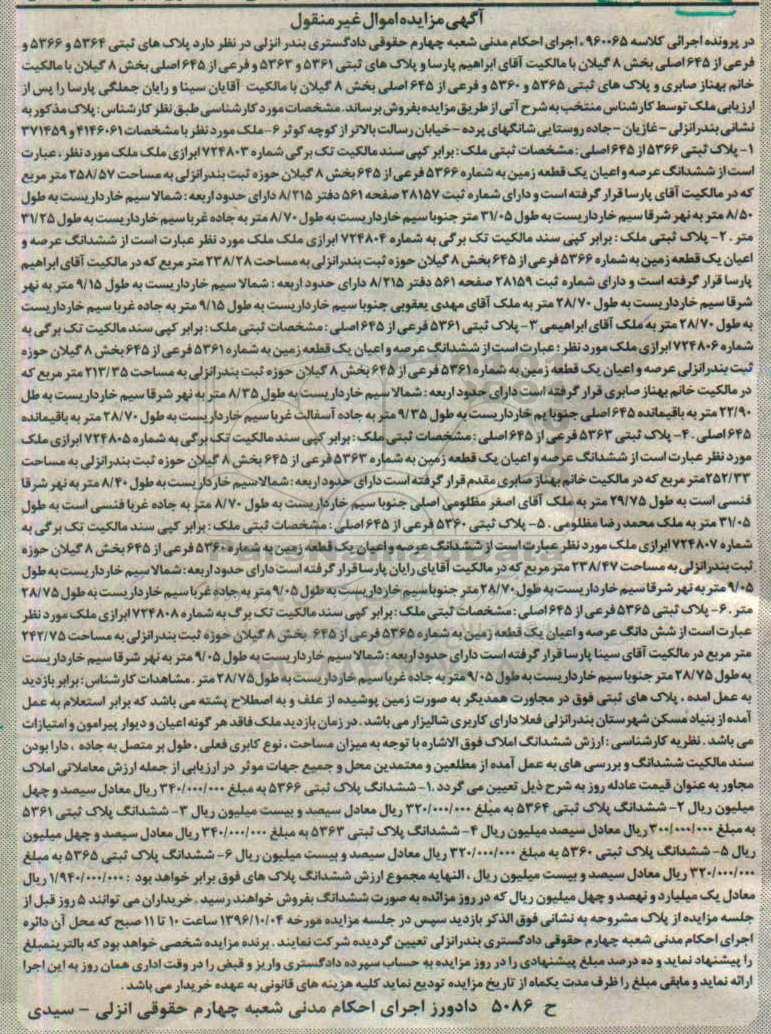 آگهی مزایده اموال غیر منقول
در پرونده اجرائی کلاسه ۹۶۰۰۶۵، اجرای احکام مدنی شعبه چهارم حقوقی دادگستری بندر انزلی در نظر دارد پلاک های ثبتی ۵۳۶۴ و ۵۳۶۶ و
فرعی از ۶۴۵ اصلی بخش ۸ گیلان با مالکیت آقای ابراهیم پارسا و پلاک های ثبتی ۵۳۶۱ و ۵۳۶۳ و فرعی از ۶۴۵ اصلی بخش ۸ گیلان با مالکیت
خانم بهناز صابری و پلاک های ثبتی ۵۳۶۵ و ۵۳۶۰ و فرعی از ۶۴۵ اصلی بخش ۸ گیلان با مالکیت آقایان سینا و رایان جملگی پارسا را پس از
ارزیابی ملک توسط کارشناس منتخب به شرح آتی از طریق مزایده بفروش برساند. مشخصات مورد کارشناسی طبق نظر کارشناس: پلاک مذکور به
نشانی بندرانزلی - غازیان - جاده روستایی شانگهای پرده - خیابان رسالت بالاتر از کوچه کوثر ۶ - ملک مورد نظر با مشخصات ۴۱۴۶۰۶۱ و ۳۷۱۴۵۹
۱- پلاک ثبتی ۵۳۶۶ از ۶۴۵ اصلی: مشخصات ثبتی ملک: برابر کپی سند مالکیت تک برگی شماره ۷۲۴۸۰۳ ابرازی ملک ملک مورد نظر، عبارت
است از ششدانگ عرصه و اعیان یک قطعه زمین به شماره ۵۳۶۶ فرعی از ۶۴۵ بخش ۸ گیلان حوزه ثبت بندرانزلی به مساحت ۲۵۸/۵۷ متر مربع
که در مالکیت آقای پارسا قرار گرفته است و دارای شماره ثبت ۲۸۱۵۷ صفحه ۵۶۱ دفتر ۸/۲۱۵ دارای حدود اربعه: شمالا سیم خارداریست به طول
۸/۵۰ متر به نهر شرقا سیم خارداریست به طول ۳۱/۰۵ متر جنوبا سیم خارداریست به طول ۸/۷۰ متر به جاده غربا سیم خارداریست به طول ۳۱/۲۵
متر. ۲- پلاک ثبتی ملک: برابر کپی سند مالکیت تک برگی به شماره ۷۲۴۸۰۴ ابرازی ملک ملک مورد نظر عبارت است از ششدانگ عرصه و
اعیان یک قطعه زمین به شماره ۵۳۶۶ فرعی از ۶۴۵ بخش ۸ گیلان حوزه ثبت بندرانزلی به مساحت ۲۳۸/۲۸ متر مربع که در مالکیت آقای ابراهیم
پارسا قرار گرفته است و دارای شماره ثبت ۲۸۱۵۹ صفحه ۵۶۱ دفتر ۸/۲۱۵ دارای حدود اربعه: شمالا سیم خارداریست به طول ۹/۱۵ متر به نهر
شرقا سیم خارداریست به طول ۲۸/۷۰ متر به ملک آقای مهدی یعقوبی جنوبا سیم خارداریست به طول ۹/۱۵ متر به جاده غربا سیم خارداریست
به طول ۲۸/۷۰ متر به ملک آقای ابراهیمی ۳- پلاک ثبتی ۵۳۶۱ فرعی از ۶۴۵ اصلی: مشخصات ثبتی ملک: برابر کپی سند مالکیت تک برگی به
شماره ۷۲۴۸۰۶ ابرازی ملک مورد نظر: عبارت است از ششدانگ عرصه و اعیان یک قطعه زمین به شماره ۵۳۶۱ فرعی از ۶۴۵ بخش ۸ گیلان حوزه
ثبت بندرانزلی عرصه و اعیان یک قطعه زمین به شماره ۵۳۶۱ فرعی از ۶۴۵ بخش ۸ گیلان حوزه ثبت بندرانزلی به مساحت ۲۱۳/۳۵ متر مربع که
در مالکیت خانم بهناز صابری قرار گرفته است دارای حدود اربعه: شمالا سیم خارداریست به طول ۸/۳۵ متر به نهر شرقا سیم خارداریست به طل
۲۲/۹۰ متر به باقیمانده ۶۴۵ اصلی جنوبا یم خارداریست به طول ۹/۳۵ متر به جاده آسفالت غربا سیم خارداریست به طول ۲۸/۷۰ متر به باقیمانده
۶۴۵ اصلی. ۴- پلاک ثبتی ۵۳۶۳ فرعی از ۶۴۵ اصلی: مشخصات ثبتی ملک: برابر کپی سند مالکیت تک برگی به شماره ۷۲۴۸۰۵ ابرازی ملک
مورد نظر عبارت است از ششدانگ عرصه و اعیان یک قطعه زمین به شماره ۵۳۶۳ فرعی از ۶۴۵ بخش ۸ گیلان حوزه ثبت بندرانزلی به مساحت
۲۵۲/۳۳ متر مربع که در مالکیت خانم بهناز صابری مقدم قرار گرفته است دارای حدود اربعه: شمالا سیم خارداریست به طول ۸/۴۰ متر به نهر شرقا
فنسی است به طول ۲۹/۷۵ متر به ملک آقای اصغر مظلومی اصلی جنوبا سیم خارداریست به طول ۸/۷۰ متر به جاده غربا فنسی است به طول
۳۱/۰۵ متر به ملک محمد رضا مظلومی. ۵- پلاک ثبتی ۵۳۶۰ فرعی از ۶۴۵ اصلی: مشخصات ثبتی ملک: برابر کپی سند مالکیت تک برگی به
شماره ۷۲۴۸۰۷ ابرازی ملک مورد نظر عبارت است از ششدانگ عرصه و اعیان یک قطعه زمین به شماره ۵۳۶۰ فرعی از ۶۴۵ بخش ۸ گیلان حوزه
ثبت بندرانزلی به مساحت ۲۳۸/۴۷ متر مربع که در مالکیت آقایای رایان پارسا قرار گرفته است دارای حدود اربعه: شمالا سیم خارداریست به طول
۹/۰۵ متر به نهر شرقا سیم خارداریست به طول ۲۸/۷۰ متر جنوبا سیم خارداریست به طول ۹/۰۵ متر به جاده غربا سیم خارداریست به طول ۲۸/۷۵
متر. ۶- پلاک ثبتی ۵۳۶۵ فرعی از ۶۴۵ اصلی: مشخصات ثبتی ملک: برابر کپی سند مالکیت تک برگ به شماره ۷۲۴۸۰۸ ابرازی ملک مورد نظر
عبارت است از شش دانگ عرصه و اعیان یک قطعه زمین به شماره ۵۳۶۵ فرعی از ۶۴۵ بخش ۸ گیلان حوزه ثبت بندرانزلی به مساحت ۲۴۲/۷۵
متر مربع در مالکیت آقای سینا پارسا قرار گرفته است دارای حدود اربعه: شمالا سیم خارداریست به طول ۹/۰۵ متر به نهر شرقا سیم خارداریست
به طول ۲۸/۷۵ متر جنوبا سیم خارداریست به طول ۹/۰۵ متر به جاده غربا سیم خارداریست به طول ۲۸/۷۵ متر. مشاهدات کارشناس: برابر بازدید
به عمل امده، پلاک های ثبتی فوق در مجاورت همدیگر به صورت زمین پوشیده از علف و به اصطلاح پشته می باشد که برابر استعلام به عمل
آمده از بنیاد مسکن شهرستان بندرانزلی فعلا دارای کاربری شالیزار می باشد. در زمان بازدید ملک فاقد هر گونه اعیان و دیوار پیرامون و امتیازات
می باشد. نظریه کارشناسی: ارزش ششدانگ املاک فوق الاشاره با توجه به میزان مساحت، نوع کابری فعلی، طول بر متصل به جاده، دارا بودن
سند مالکیت ششدانگ و بررسی های به عمل آمده از مطلعین و معتمدین محل و جمیع جهات موثر در ارزیابی از جمله ارزش معاملاتی املاک
مجاور به عنوان قیمت عادله روز به شرح ذیل تعیین می گردد. ۱- ششدانگ پلاک ثبتی ۵۳۶۶ به مبلغ ۳۴۰/۰۰۰/۰۰۰ ریال معادل سیصد و چهل
میلیون ریال ۲- ششدانگ پلاک ثبتی ۵۳۶۴ به مبلغ ۳۲۰/۰۰۰/۰۰۰ ریال معادل سیصد و بیست میلیون ریال ۳- ششدانگ پلاک ثبتی ۵۳۶۱
به مبلغ ۳۰۰/۰۰۰/۰۰۰ ریال معادل سیصد میلیون ریال ۴- ششدانگ پلاک ثبتی ۵۳۶۳ به مبلغ ۳۴۰/۰۰۰/۰۰۰ ریال معادل سیصد و چهل میلیون
ریال ۵- ششدانگ پلاک ثبتی ۵۳۶۰ به مبلغ ۳۲۰/۰۰۰/۰۰۰ ریال معادل سیصد و بیست میلیون ریال ۶- ششدانگ پلاک ثبتی ۵۳۶۵ به مبلغ
۳۲۰/۰۰۰/۰۰۰ ریال معادل سیصد و بیست میلیون ریال، النهایه مجموع ارزش ششدانگ پلاک های فوق برابر خواهد بود: ۱/۹۴۰/۰۰۰/۰۰۰ ریال
معادل یک میلیارد و نهصد و چهل میلیون ریال که در روز مزائده به صورت ششدانگ بفروش خواهند رسید. خریداران می توانند ۵ روز قبل از
جلسه مزایده از پلاک مشروحه به نشانی فوق الذکر بازدید سپس در جلسه مزایده مورخه ۱۳۹۶/۱۰/۰۴ ساعت ۱۰ تا ۱۱ صبح که محل آن دائره
اجرای احکام مدنی شعبه چهارم حقوقی دادگستری بندرانزلی تعیین گردیده شرکت نمایند. برنده مزایده شخصی خواهد بود که بالترینمبلغ
را پیشنهاد نماید و ده درصد مبلغ پیشنهادی را در روز مزایده به حساب سپرده دادگستری واریز و قبض را در وقت اداری همان روز به این اجرا
ارائه نماید و مابقی مبلغ را ظرف مدت یکماه از تاریخ مزایده تودیع نماید کلیه هزینه های قانونی به عهده خریدار می باشد.
ح ۵۰۸۶ دادورز اجرای احکام مدنی شعبه چهارم حقوقی انزلی - سیدی